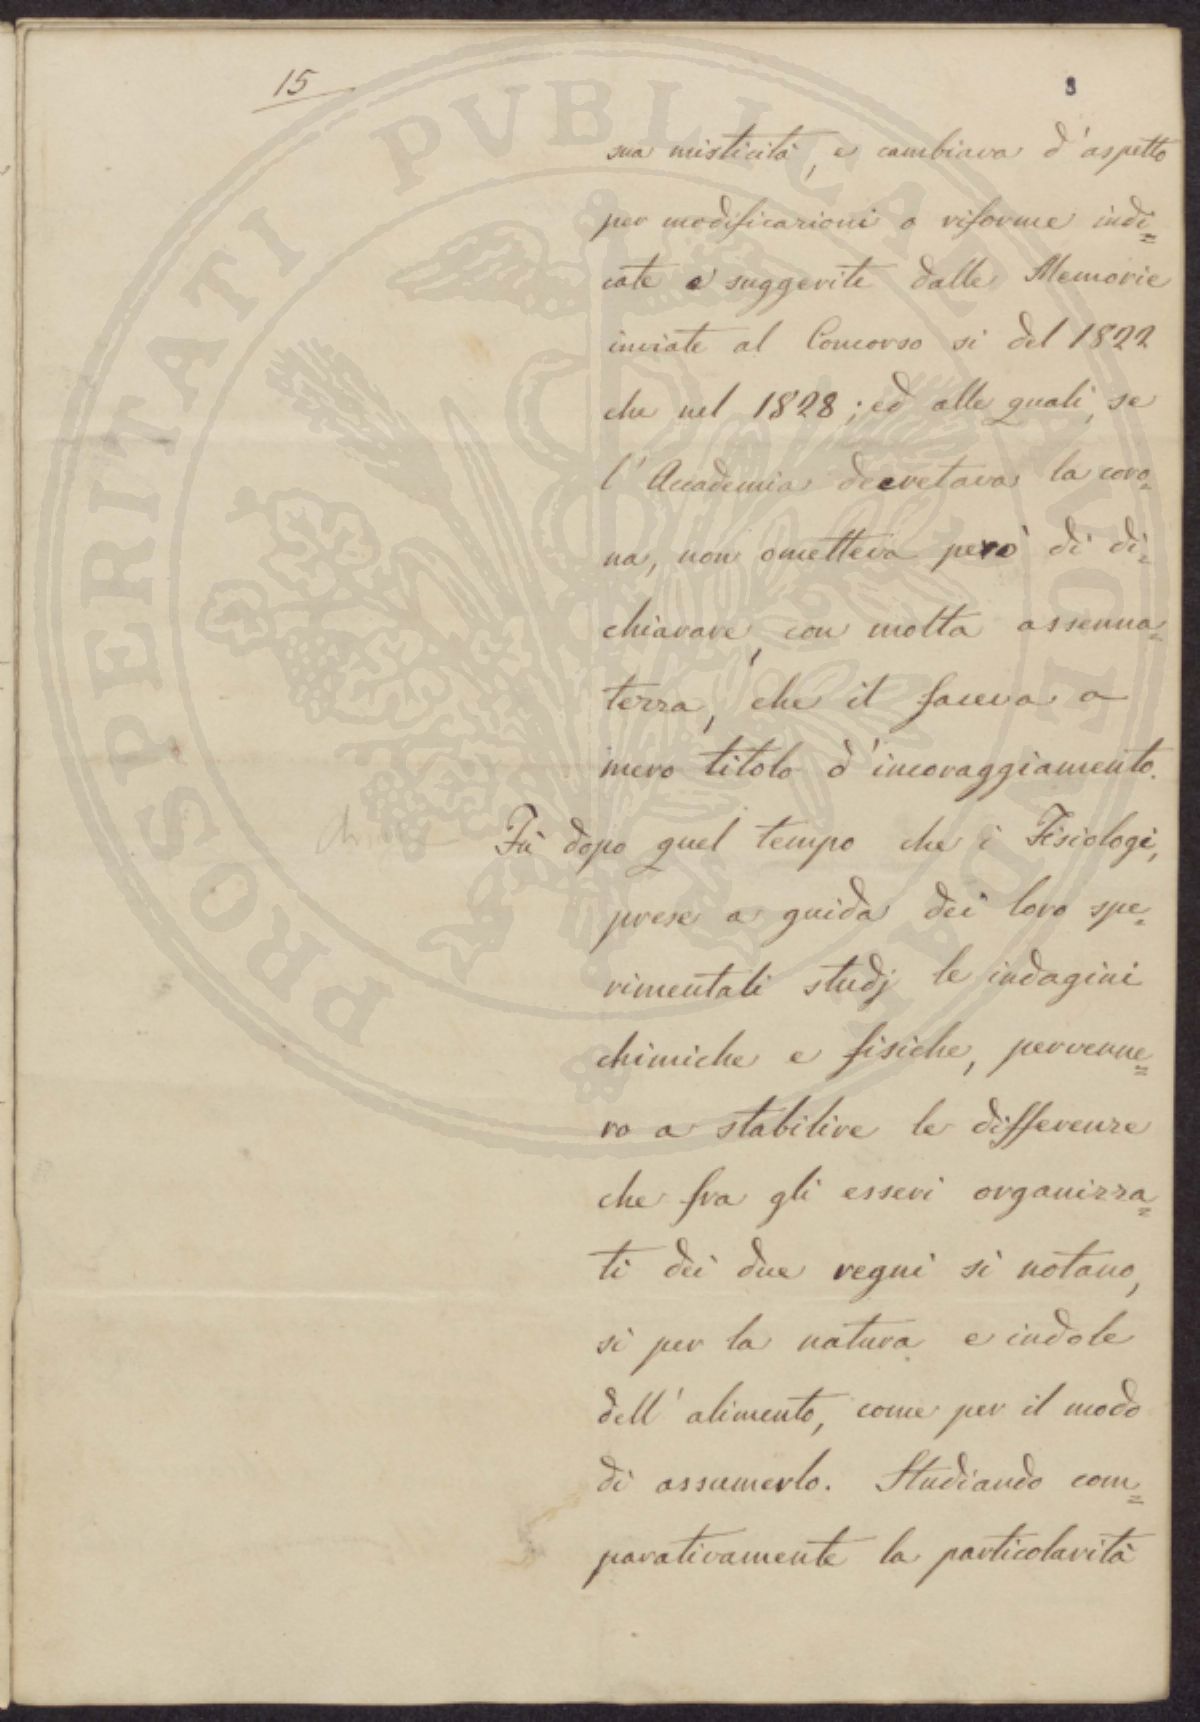 15
sua misticità, e cambiava d'aspetto
per modificazioni o riforme indi=
cate e suggerite dalle Memorie
inviate al Concorso si del 1822
che nel 1828; ed alle quali, se
l'Accademia decretava la coro=
na, non ometteva però di di=
chiarare, con molta assenna=
tezza, che il faceva a
mero titolo d'incoraggiamento.
Fù dopo quel tempo che i Fisiologi,
prese a guida dei loro spe=
rimentali studj le indagini
chimiche e fisiche, pervenne=
ro a stabilire le differenze
che fra gli esseri organizza=
ti dei due regni si notano,
si per la natura e indole
dell'alimento, come per il modo
di assumerlo. Studiando com=
parativamente la particolarità
PROSPERITATI PVBLICAE